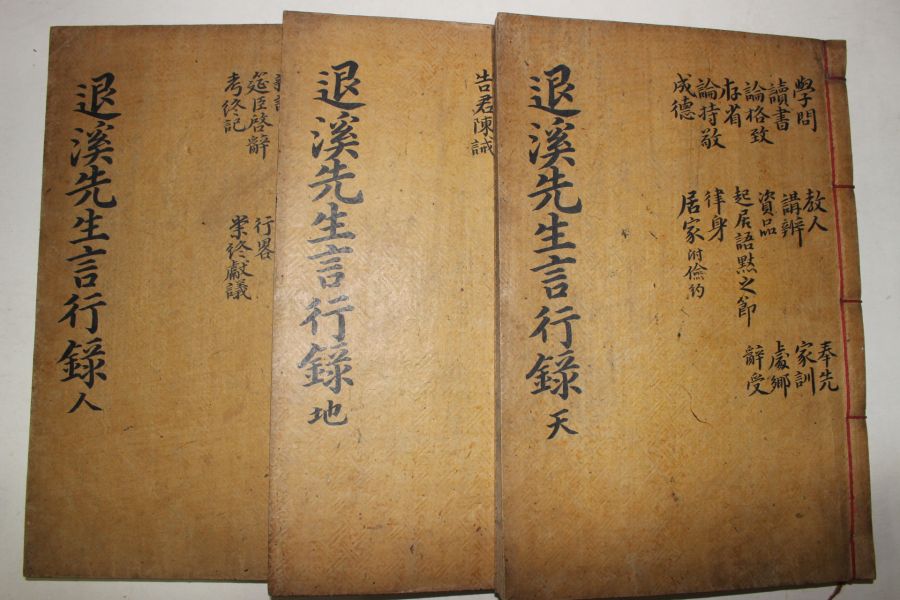 學問
讀書
論格致
存省
論持敬
成德
教人
講辨
資品
起居語黙之節
律身
居家附儉約
奉先
家訓
處鄉
辭受
退溪先生言行錄 天
告君陳誡
退溪先生言行錄 地
筵臣啓辭
考終記
行畧
崇終獻議
退溪先生言行錄 人